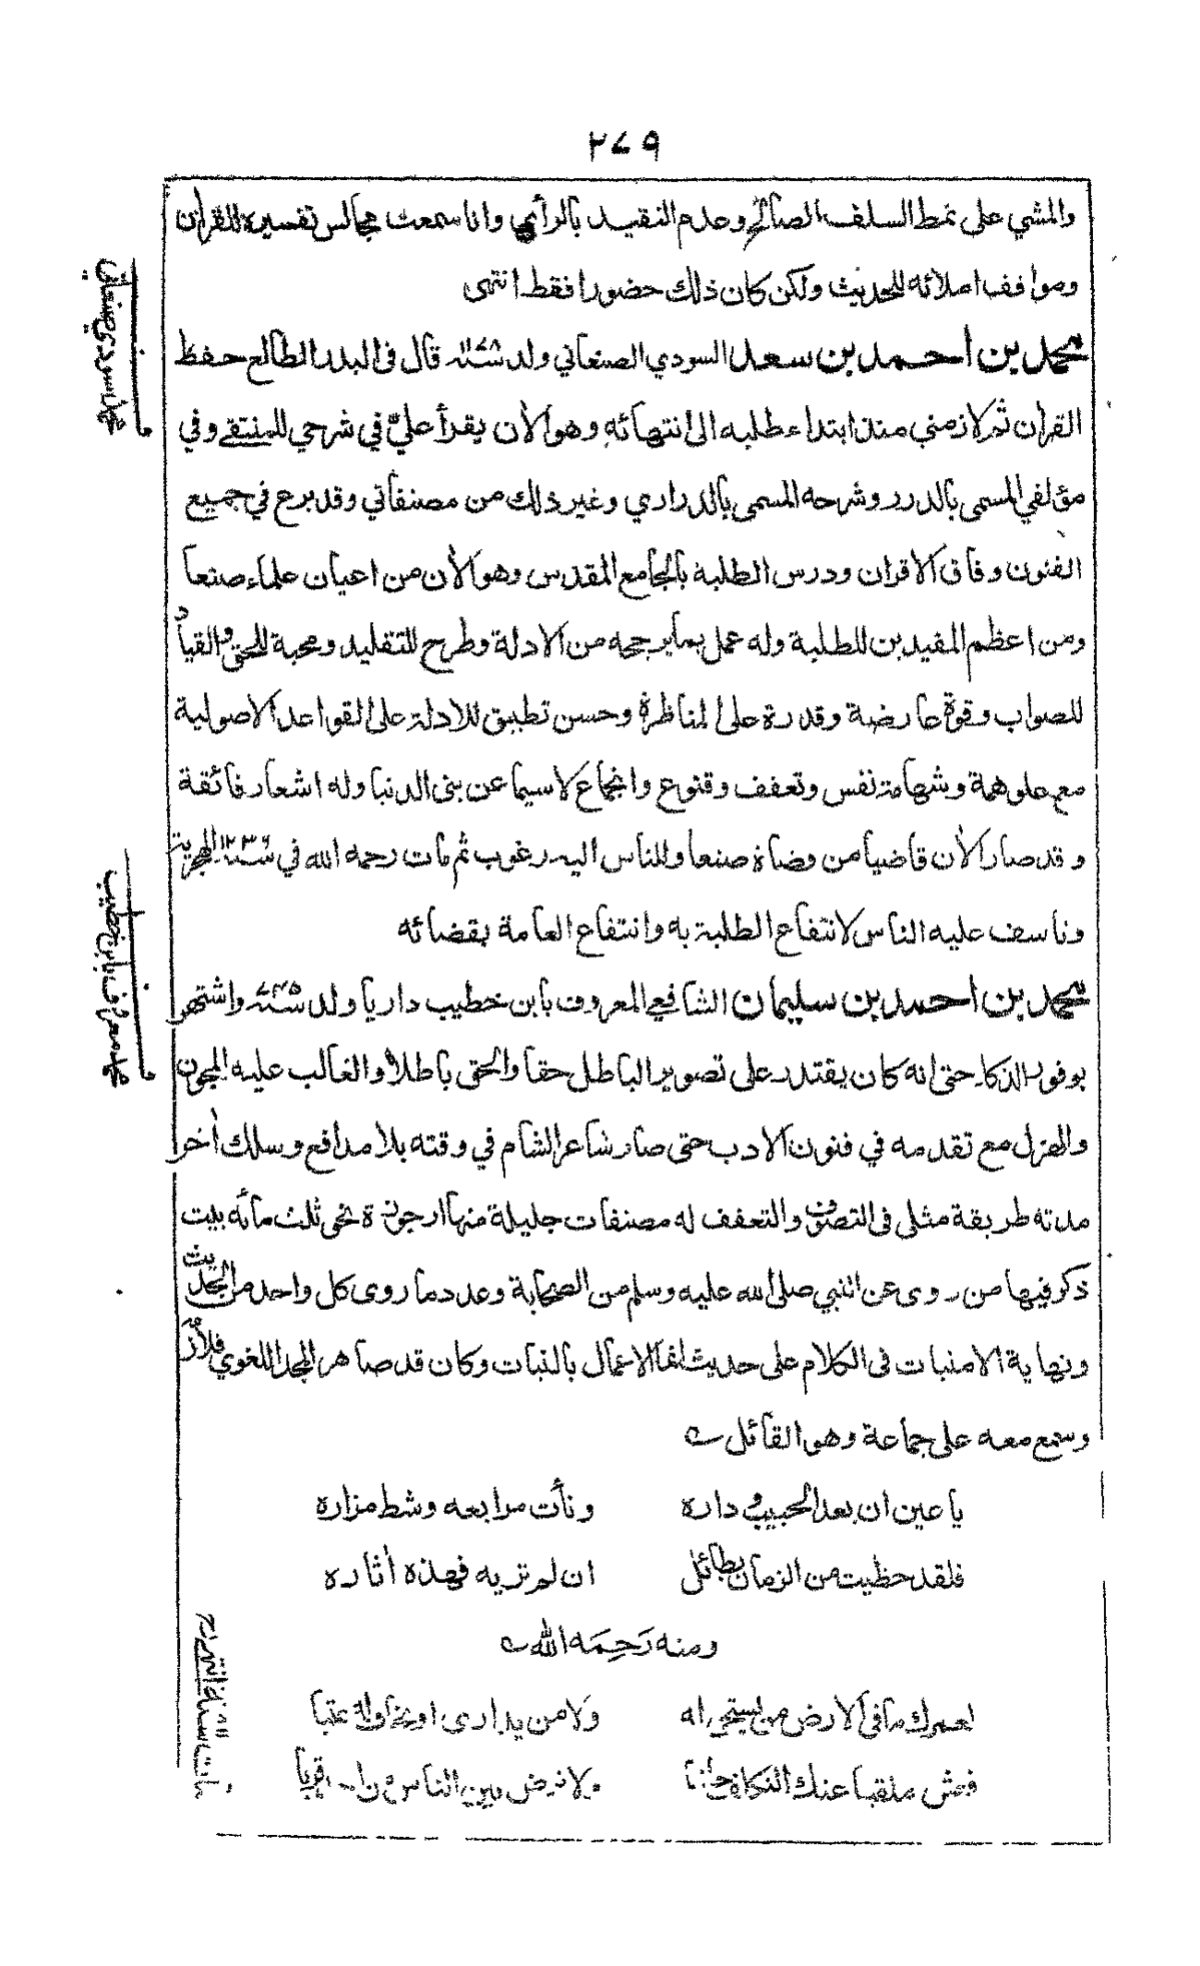 ٢٧٩
والمشي على نمط السلف الصالح وعدم التقيد بالرأي وانا سمعت مجالس تفسيره للقرأن
ومواقف املائه للحديث ولكن كان ذلك حضورا فقط انتهى
محمد بن احمد بن سعد السودي الصنعاني ولد سنة ١١٧٨ قال فى البدر الطالع حفظ
القرأن ثم لازمني منذ ابتداء طلبه الى انتهائه وهو الأن يقرأ عليّ في شرحي للمنتقے وفي
مؤلفي المسمى بالدرر وشرحه المسمى بالدراري وغير ذلك من مصنفاتي وقد برع في جميع
الفنون وفاق الاقران ودرس الطلبة بالجامع المقدس وهو الأن من اعيان علماء صنعا
ومن اعظم المفيدين للطلبة وله عمل بما يرجحه من الادلة وطرح للتقليد ومحبة للحق والقياد
للصواب وقوة عارضة وقدرة على المناظرة وحسن تطبيق للادلة على القواعد الاصولية
مع علو همة وشهامة نفس وتعفف وقنوع وانجماع لاسيما عن بنى الدنيا وله اشعار فائقة
وقد صار الأن قاضيا من قضاة صنعا وللناس اليه رغوب ثم مات رحمه الله في سنة ١٢٣٦ الهجرية
وتاسف عليه الناس لانتفاع الطلبة به وانتفاع العامة بقضائه
محمد بن احمد بن سليمان الشافعي المعروف بابن خطيب داريا ولد سنة ٧٤٥ واشتهر
بوفور الذكاء حتى انه كان يقتدر على تصوير الباطل حقا والحق باطلا والغالب عليه المجون
والهزل مع تقدمه في فنون الادب حتى صار شاعر الشام في وقته بلا مدافع وسلك أخر
مدته طريقة مثلى فى التصوف والتعفف له مصنفات جليلة منها ارجوزة نحى ثلث مائه بيت
ذكر فيها من روى عن النبي صلى الله عليه وسلم من الصحابة وعدد ما روى كل واحد من الحديث
ونهاية الامنيات فى الكلام على حديث انما الاعمال بالنيات وكان قد صاهر المجد اللغوي فلازمه
وسمع معه على جماعة وهو القائل ے
يا عين ان بعد الحبيب و داره ونأت مرابعه وشط مزاره
فلقد حظيت من الزمان بطائل ان لم تريه فهذه أثاره
ومنه رَحِمَه الله ے
لعمرك ما فى الارض من يستحي له ولا من يدارى او يخاف له عتبا
فعش ملقيا عنك التكلف جانبا ولا ترض بين الناس
محمد سودي صنعاني
محمد معروف بابن خطيب